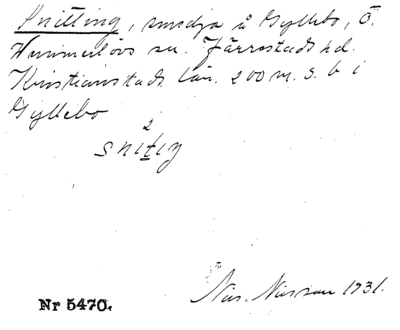 Snitting, smedja å Gyllebo, Ö.
Hammenlövs sn. Järrestads hd.
Kristianstads län. 200 m. S. b i
Gyllebo
2
snitiŋ
Nils Nilsson 1931.
Nr 5470.